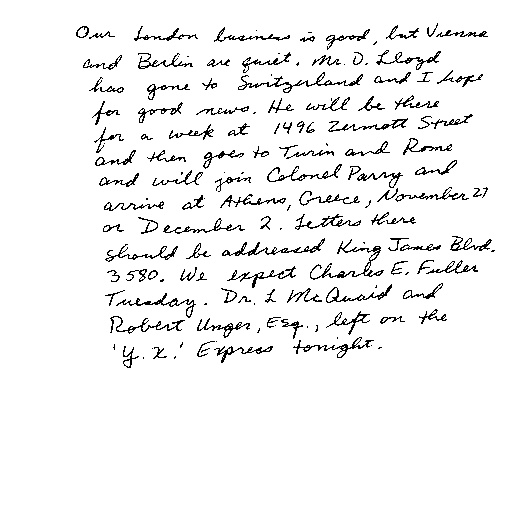 Our London business is good, but Vienna
and Berlin are quiet. Mr. D. Lloyd
has gone to Switzerland and I hope
for good news. He will be there
for a week at 1496 Zermott Street
and then goes to Turin and Rome
and will join Colonel Parry and
arrive at Athens, Greece, November 27
or December 2. Letters there
should be addressed King James Blvd.
3580. We expect Charles E. Fuller
Tuesday. Dr. L McQuaid and
Robert Unger, Esq., left on the
'Y. X.' Express tonight.